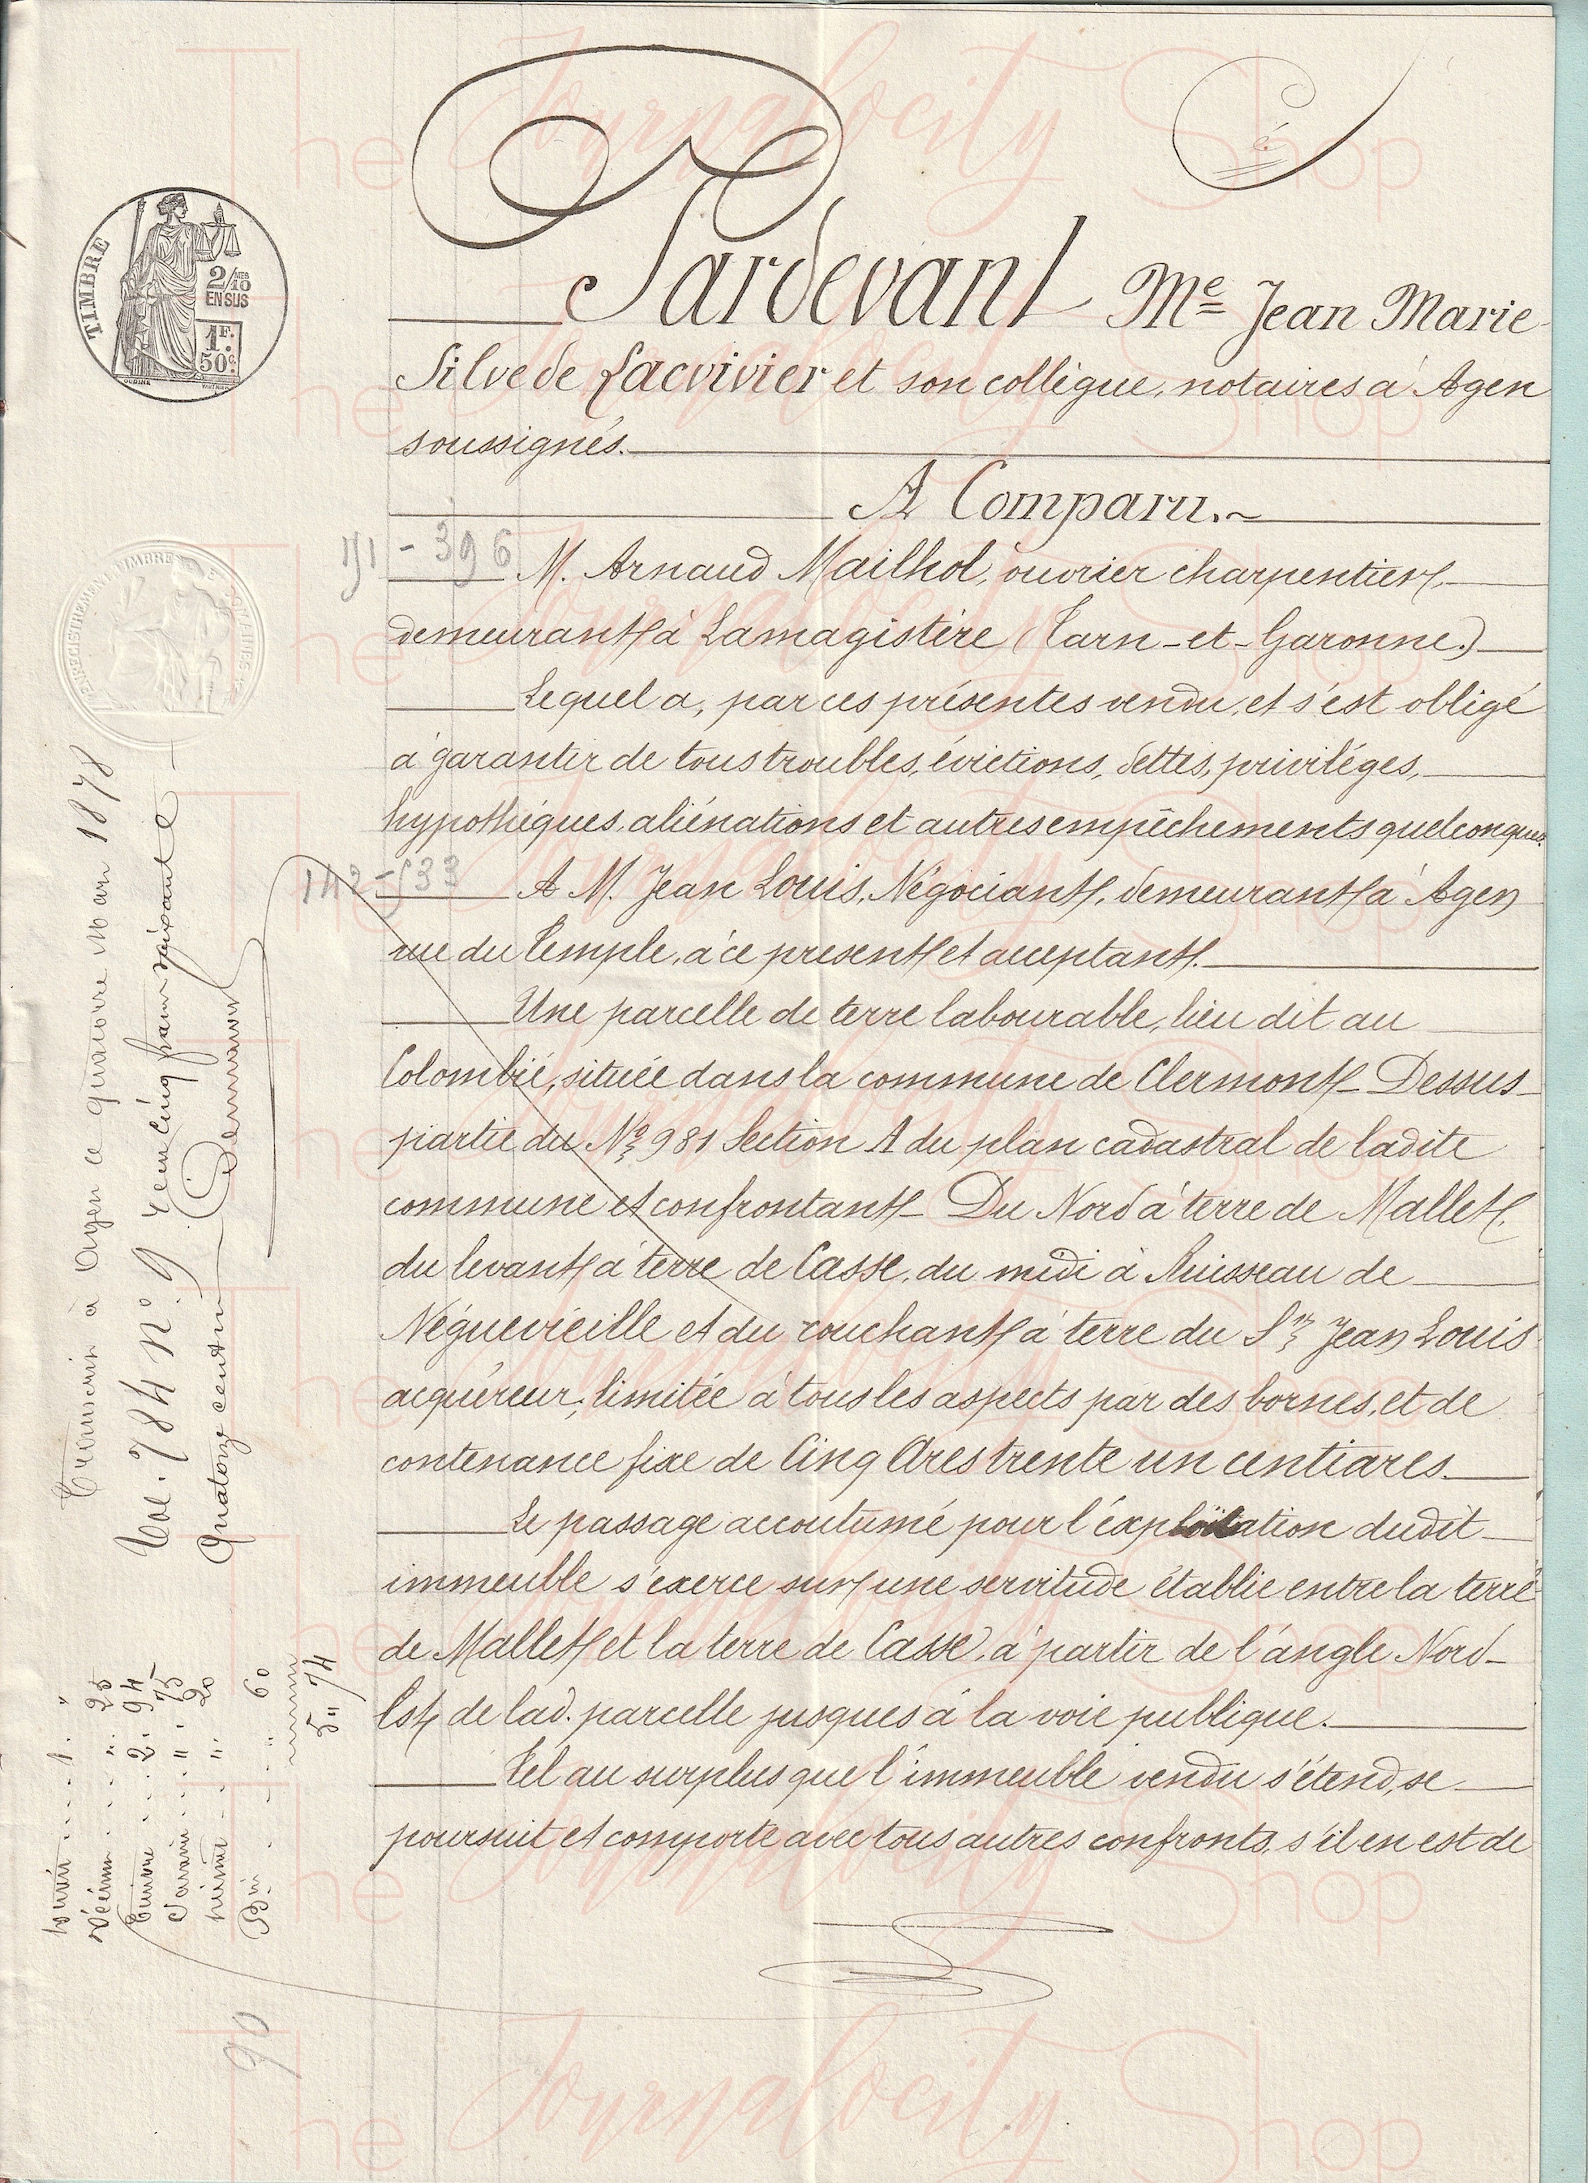 Pardevant Me Jean Marie
Silvede Lacvivier et son collègue, notaires à Agen
soussignés.
A Comparu.
M. Arnaud Mailhol, ouvrier charpentier,
demeurant à Lamagistère (Tarn-et-Garonne.)
Lequel a, par ces présentes vendu, et s'est obligé
à garantir de tous troubles, évictions, dettes, priviléges,
hypothèques, aliénations et autres empêchements quelconques.
A M. Jean Louis, Négociant, demeurant à Agen
rue du Temple, à ce present et acceptant.
Une parcelle de terre labourable, lieu dit au
Colombié, située dans la commune de Clermont-Dessus
partie du No 981 Section A du plan cadastral de ladite
commune et confrontant Du Nord à terre de Mallet,
du levant à terre de Casse, du midi à Ruisseau de
Néguevieille et du couchant à terre du Sr Jean Louis
acquéreur; limitée à tous les aspects par des bornes, et de
contenance fixe de Cinq Ares trente un centiares.
Le passage accoutumé pour l'éxploitation dudit
immeuble s'exerce sur une servitude établie entre la terre
de Mallet et la terre de Casse, à partir de l'angle Nord-
Est, de lad. parcelle jusques à la voie publique.
Tel au surplus que l'immeuble vendu s'étend, se
poursuit et comporte avec tous autres confronts, s'il en est de
TIMBRE
2/10 MES
EN SUS
1F.
50c.
OUDINÉ
ENREGISTREMENT TIMBRE ET DOMAINES
191 - 396
142 - 533
à Agen ce quatorze 1878
Vol. 784 No. 9
Quatorze centimes
1. "
" 25
2. 94
" 75
" 20
" 60
5 " 74
90
The Journalocity Shop